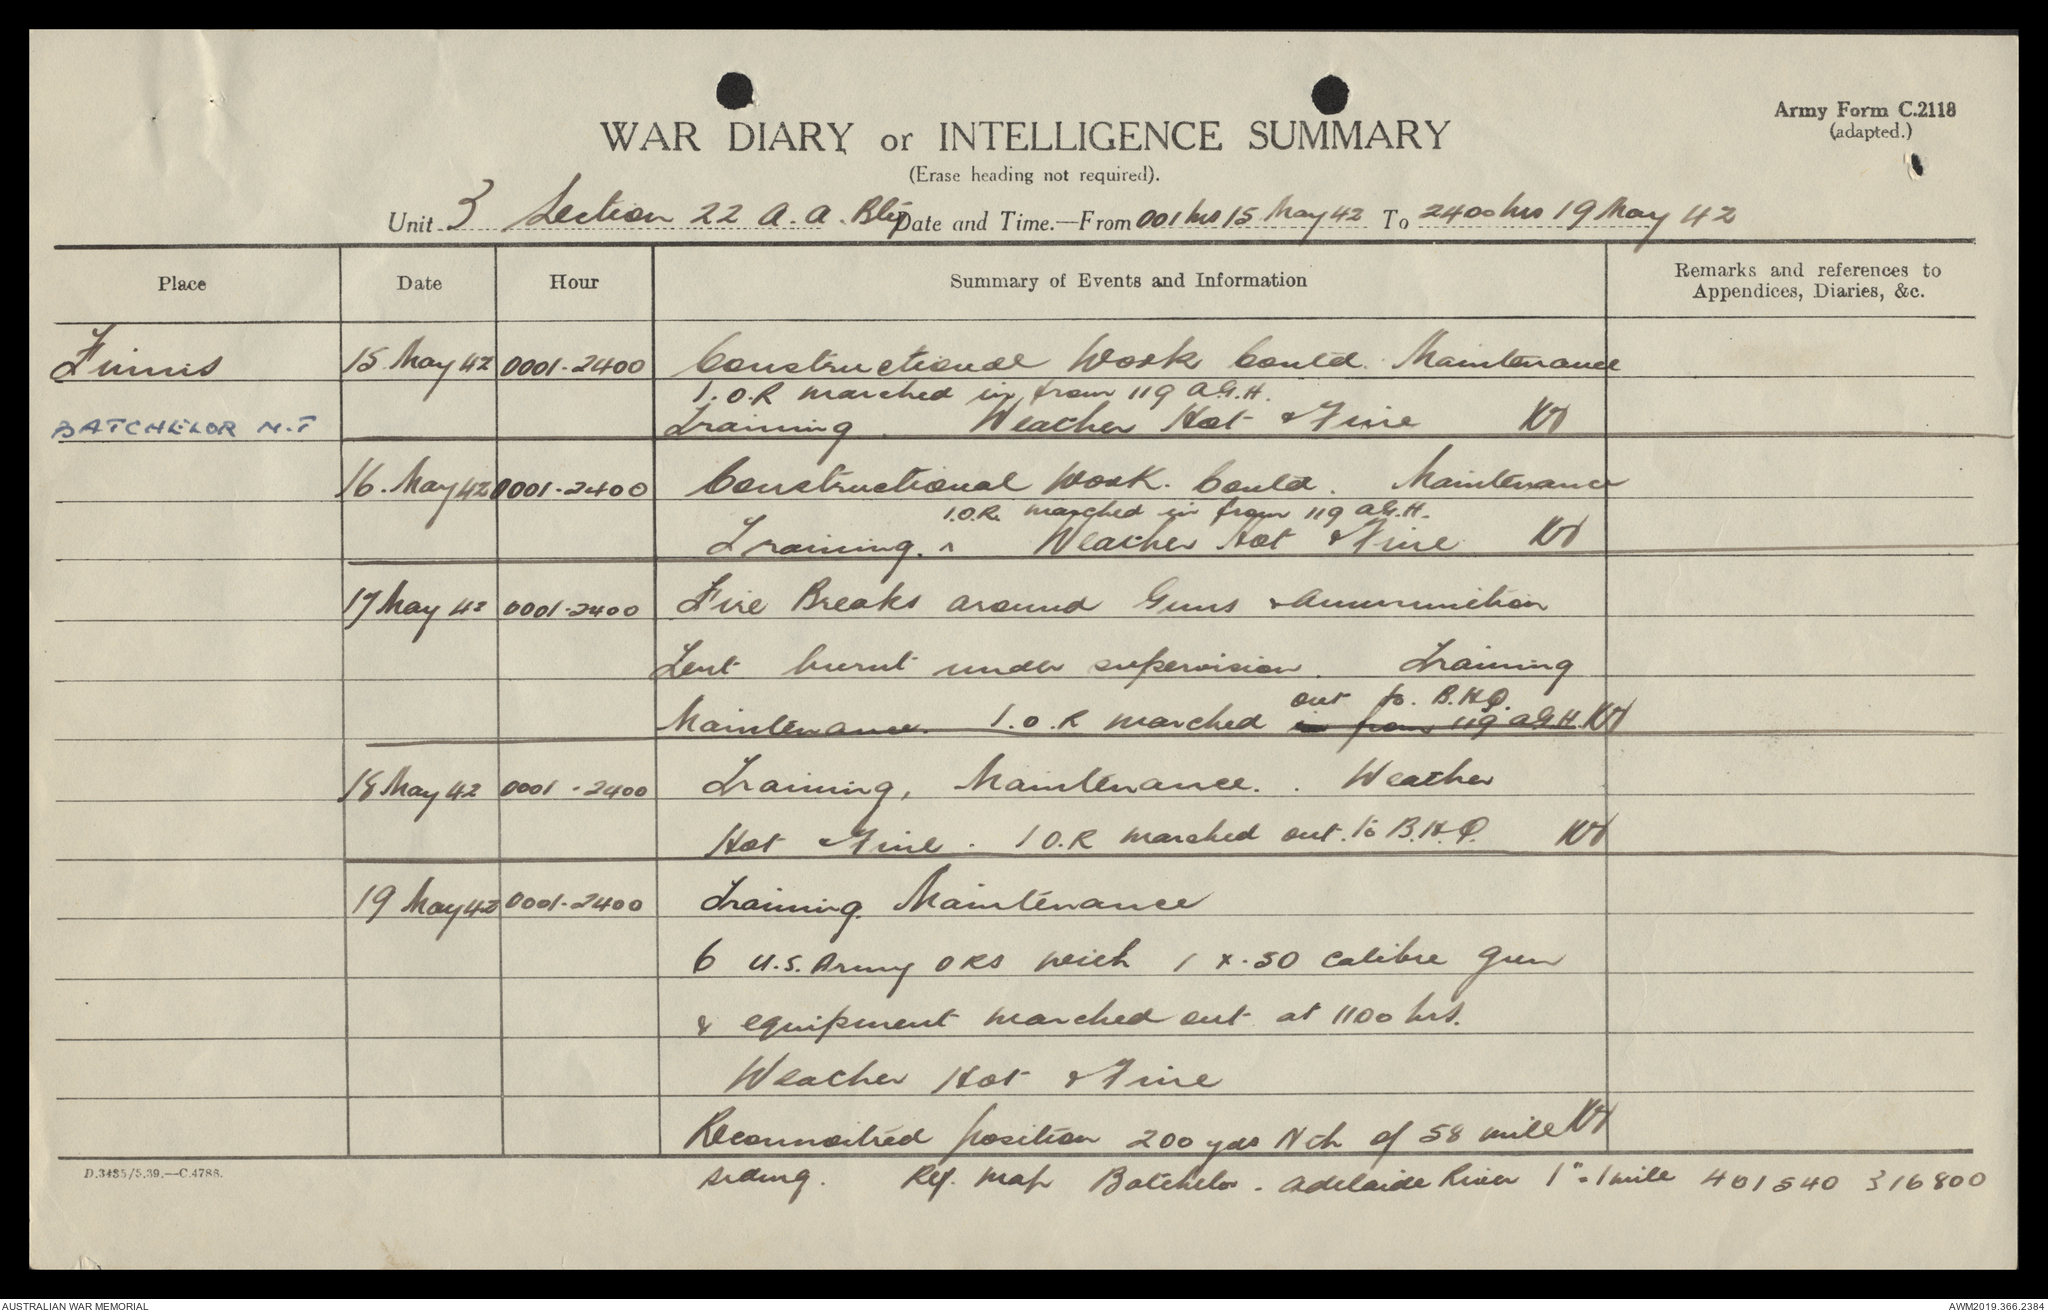 Army Form C.2118
(adapted.)
WAR DIARY or INTELLIGENCE SUMMARY
(Erase heading not required).
Unit 3 Section 22 A.A. Bty Date and Time.—From 001 hrs 15 May 42 To 2400 hrs 19 May 42
Place Date Hour Summary of Events and Information Remarks and references to
Appendices, Diaries, &c.
Finnis 15 May 42 0001-2400 Constructional Work Contd. Maintenance
1.O.R marched in from 119 A.G.H.
BATCHELOR N.T Training. Weather Hot & Fine
16. May 42 0001-2400 Constructional Work. Contd. Maintenance
1.O.R. marched in from 119 A.G.H.
Training. ^ Weather Hot & Fine
17 May 42 0001-2400 Fire Breaks around Guns & Ammunition
Tent burnt under supervision. Training
out to B.H.Q.
Maintenance. 1.O.R marched in from 119 AGH
18 May 42 0001-2400 Training, Maintenance. . Weather
Hot & Fine. 1 O.R marched out. to B.H.Q.
19 May 42 0001-2400 Training. Maintenance
6 U.S. Army ORS with 1 x .50 calibre gun
& equipment marched out at 1100 hrs.
Weather Hot & Fine
Reconnoitred position 200 yds Nth of 58 mile
siding. Ref. Map Batchelor - Adelaide River 1" = 1 mile 401540 316800
D.3435/5.39.—C.4788.
AUSTRALIAN WAR MEMORIAL
AWM2019.366.2384